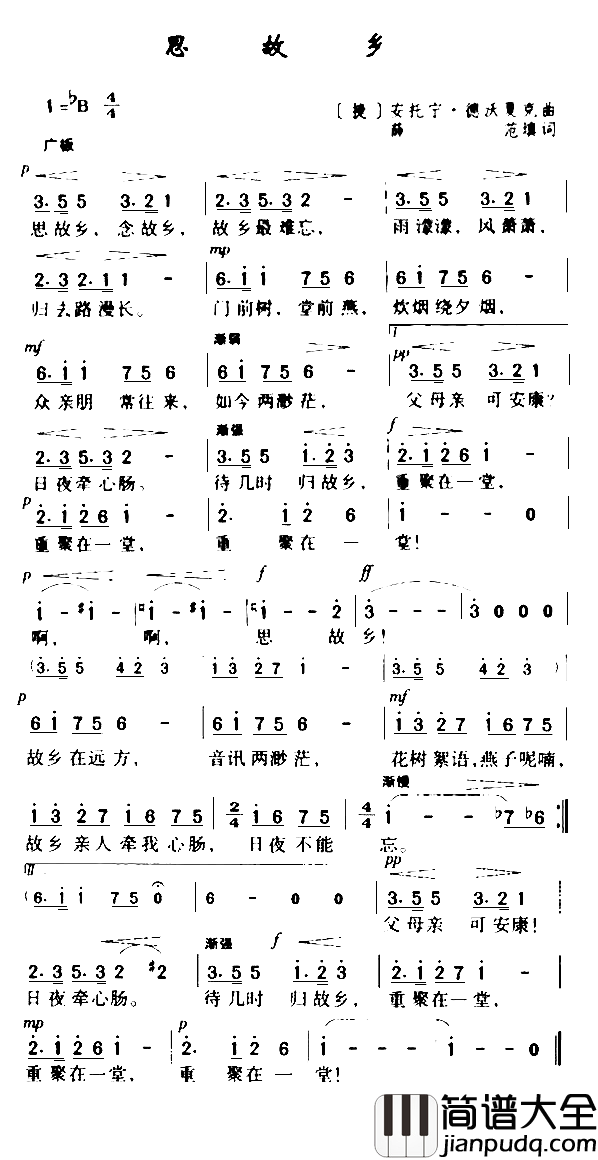 思 故 乡
1=♭B 4/4 〔捷〕安托宁·德沃夏克曲
广板 薛 范填词
p
3·55 3·21 | 2·35·32 - | 3·55 3·21 |
思故乡，念故乡，故乡最难忘，雨濛濛，风萧萧，
mp
2·32·1 - | 6·i i 756 | 6i756 - |
归去路漫长。门前树，堂前燕，炊烟绕夕烟，
mf 渐弱 1 pp
6·i i 756 | 6i756 - | 3·55 3·21 |
众亲朋 常往来，如今两渺茫，父母亲 可安康？
渐强 f
2·35·32 - | 3·55 i·2̇3̇ | 2̇·i2̇6i - |
日夜牵心肠。待几时 归故乡，重聚在一堂，
p
2̇·i2̇6i - | 2̇· i 2̇ 6 | i - - 0 |
重聚在一堂，重 聚在一 堂！
p f ff
i - ♯i - | ♮i - ♯i - | i - - 2̇ | 3̇ - - - | 3̇ 0 0 0 |
啊， 啊， 思 故 乡！
(3̇·5̇5̇ 4̇2̇3̇ | i3̇2̇7i - | 3̇·5̇5̇ 4̇2̇3̇)
p mf
6i756 - | 6i756 - | i3̇2̇7 i675 |
故乡在远方，音讯两渺茫，花树絮语，燕子呢喃，
渐慢
i3̇2̇7i675 | 2/4 i675 | 4/4 i - - ♭7♭6 :‖
故乡亲人牵我心肠，日夜不能 忘。
fff pp
(6·i i 750 | 6 - 0 0 | 3·55 3·21 |
父母亲 可安康！
渐强 f
2·35·32 ♯2 | 3·55 i·2̇3̇ | 2̇·i2̇7i - |
日夜牵心肠。待几时 归故乡，重聚在一堂，
mp p
2̇·i2̇6i - | 2̇· i2̇6 | i - - - | i - - 0 ‖
重聚在一堂，重 聚在一 堂！
简谱大全
jianpudq.com